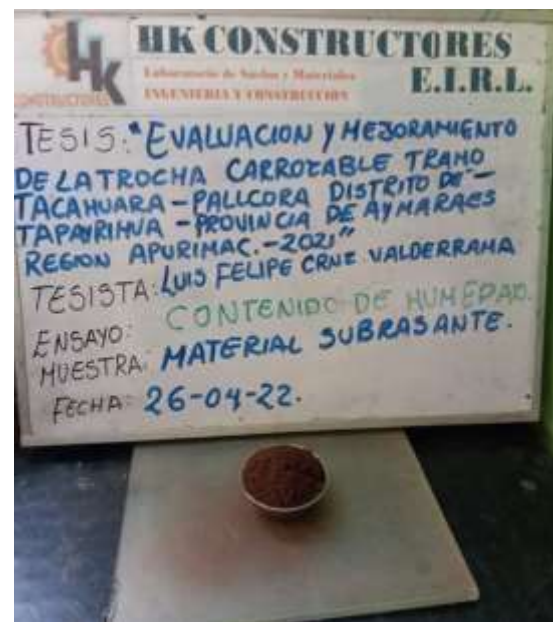 HK CONSTRUCTORES
E.I.R.L.
Laboratorio de Suelos y Materiales
INGENIERIA Y CONSTRUCCION
HK
CONSTRUCTORES
TESIS: "EVALUACION Y MEJORAMIENTO
DE LA TROCHA CARROZABLE TRAMO
TACAHUARA - PALLCORA DISTRITO DE -
TAPAYRIHUA - PROVINCIA DE AYMARAES
REGION APURIMAC. - 2021"
TESISTA: LUIS FELIPE CRUZ VALDERRAMA
ENSAYO: CONTENIDO DE HUMEDAD.
MUESTRA: MATERIAL SUBRASANTE.
FECHA: 26-04-22.